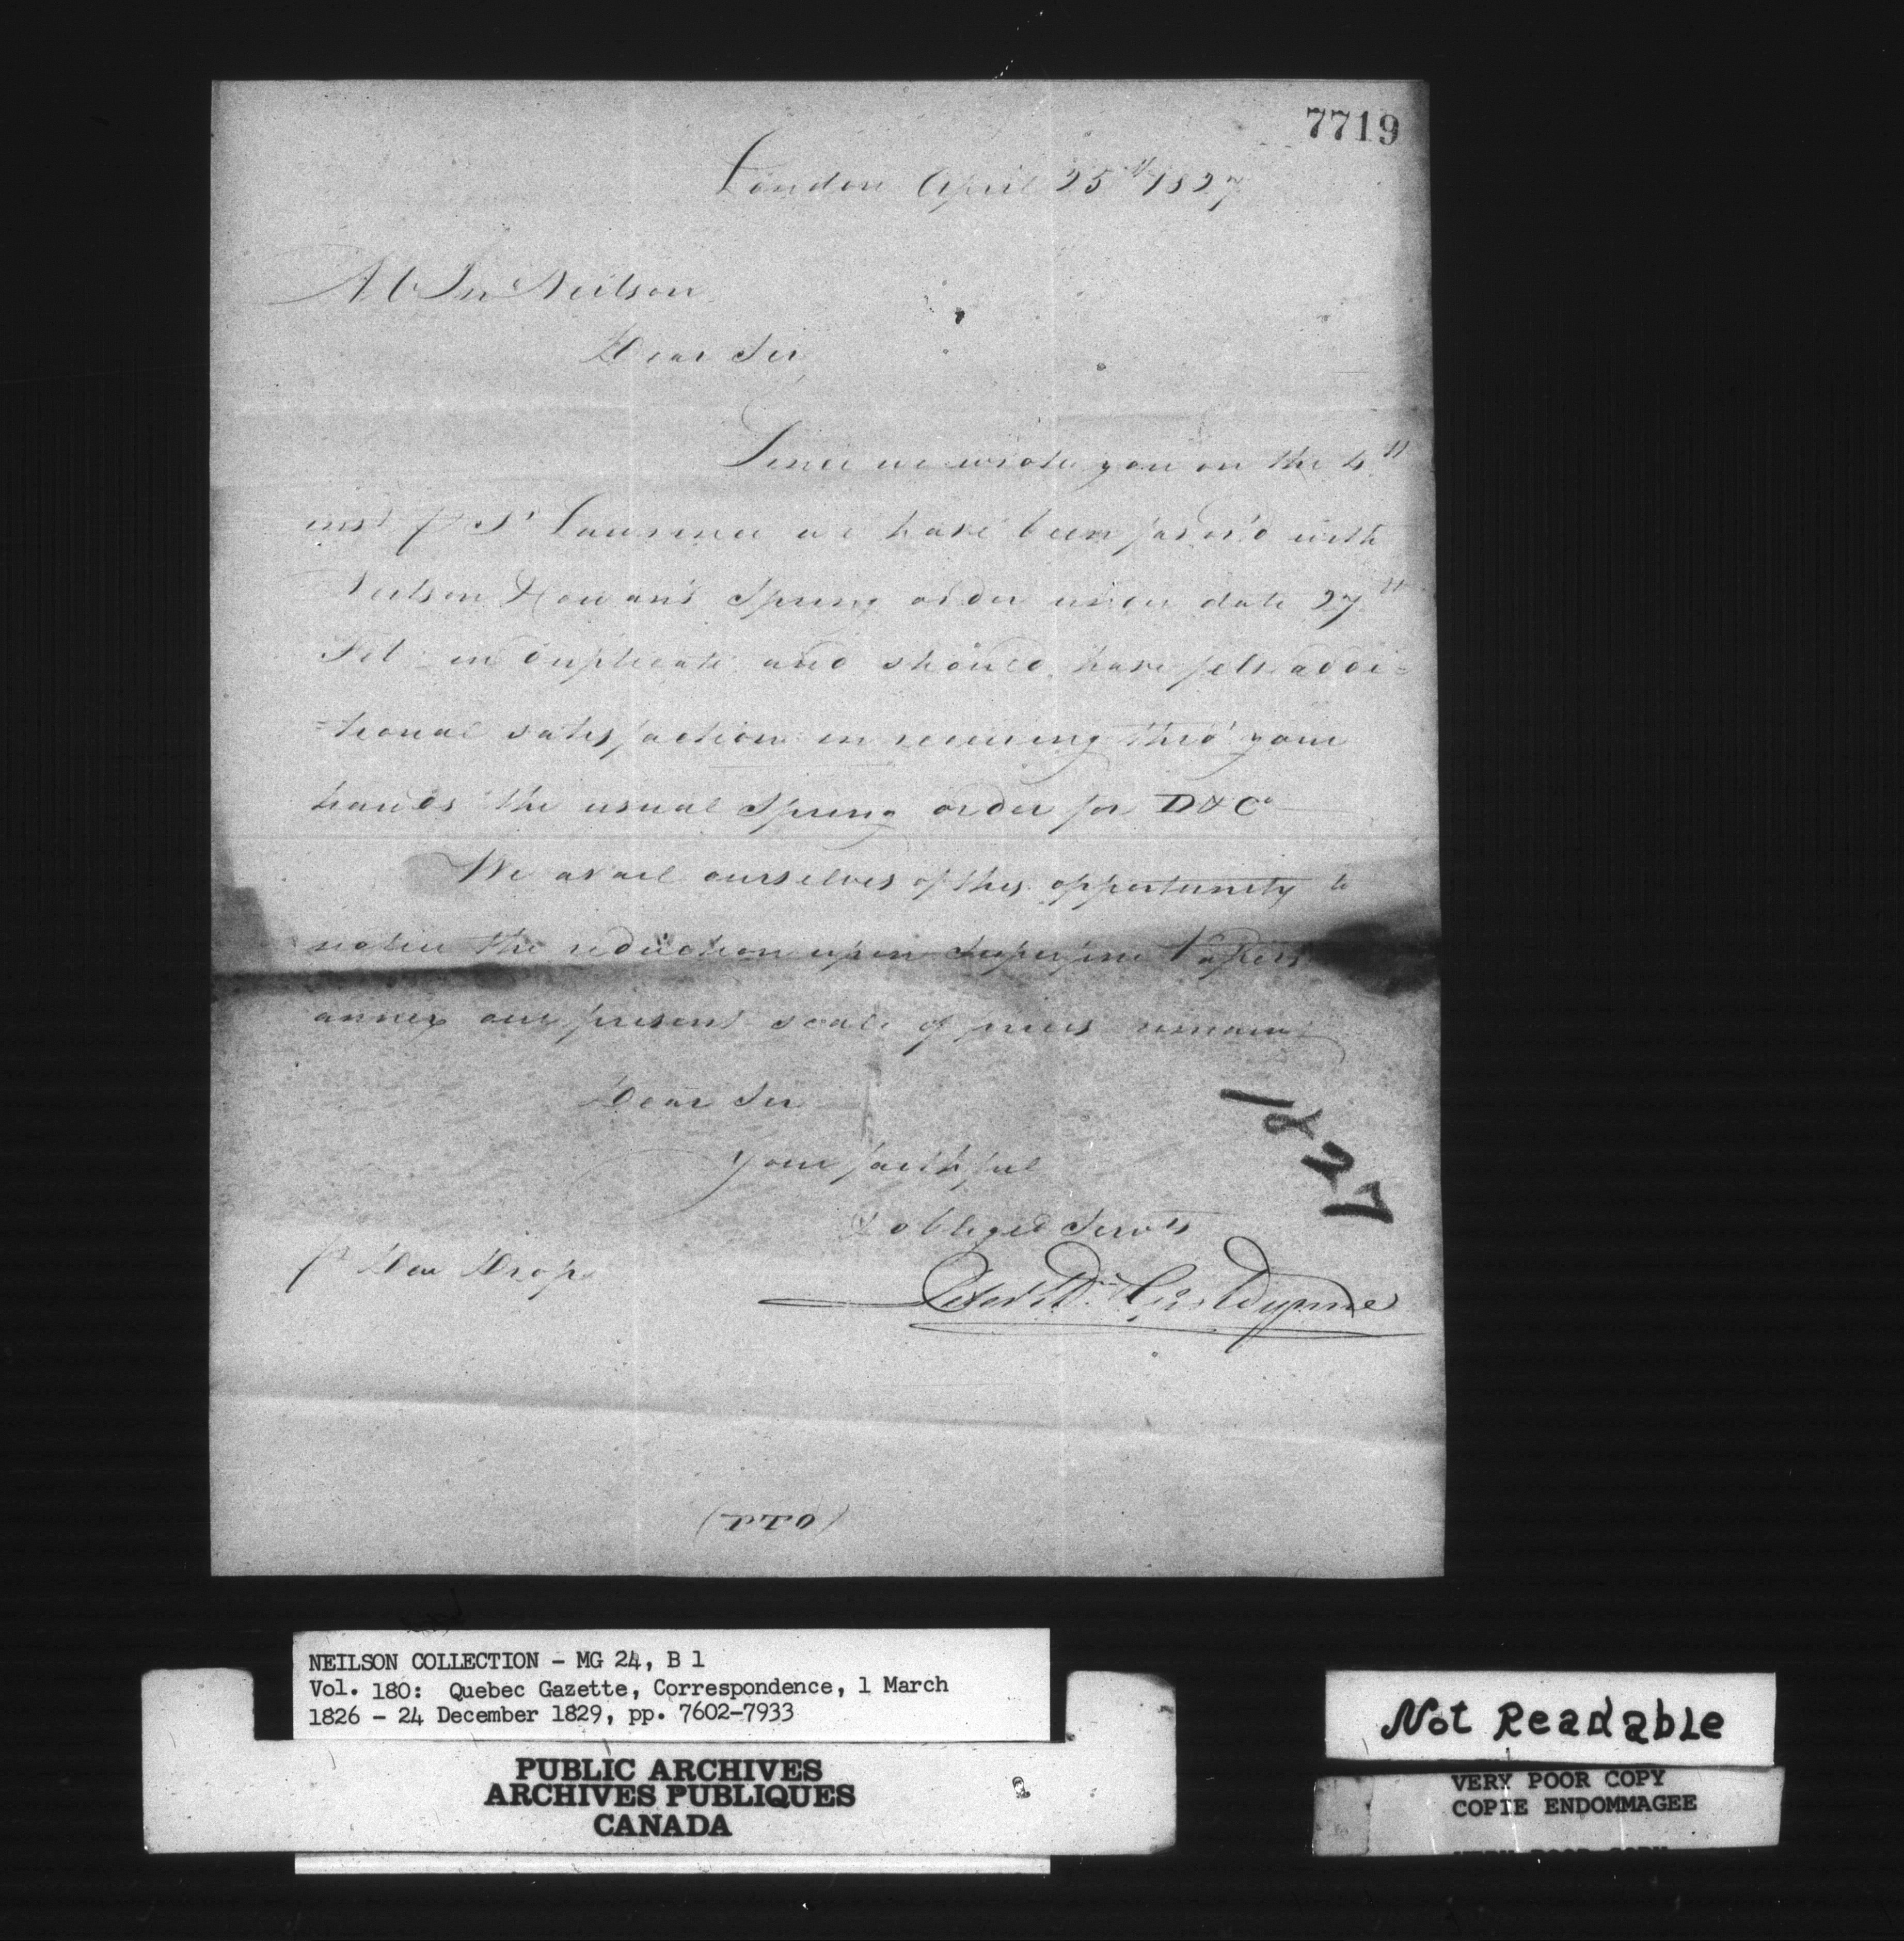 7719
London April 25th 1827
Mr Jn Neilson
Dear Sir
Since we wrote you on the 4th
inst pr St Lawrence we have been favor'd with
Neilson & Cowan's Spring order under date 27th
Feb in duplicate and should have felt addi-
-tional satisfaction in receiving thro' your
hands the usual Spring order for D & Co
We avail ourselves of this opportunity to
notice the reduction upon Superfine Papers
annex our present scale of prices remain
Dear Sir
Your faithful
& obliged Servts
1827
pr Dew Drop
(PTO)
NEILSON COLLECTION - MG 24, B 1
Vol. 180: Quebec Gazette, Correspondence, 1 March
1826 - 24 December 1829, pp. 7602-7933
PUBLIC ARCHIVES
ARCHIVES PUBLIQUES
CANADA
Not Readable
VERY POOR COPY
COPIE ENDOMMAGEE